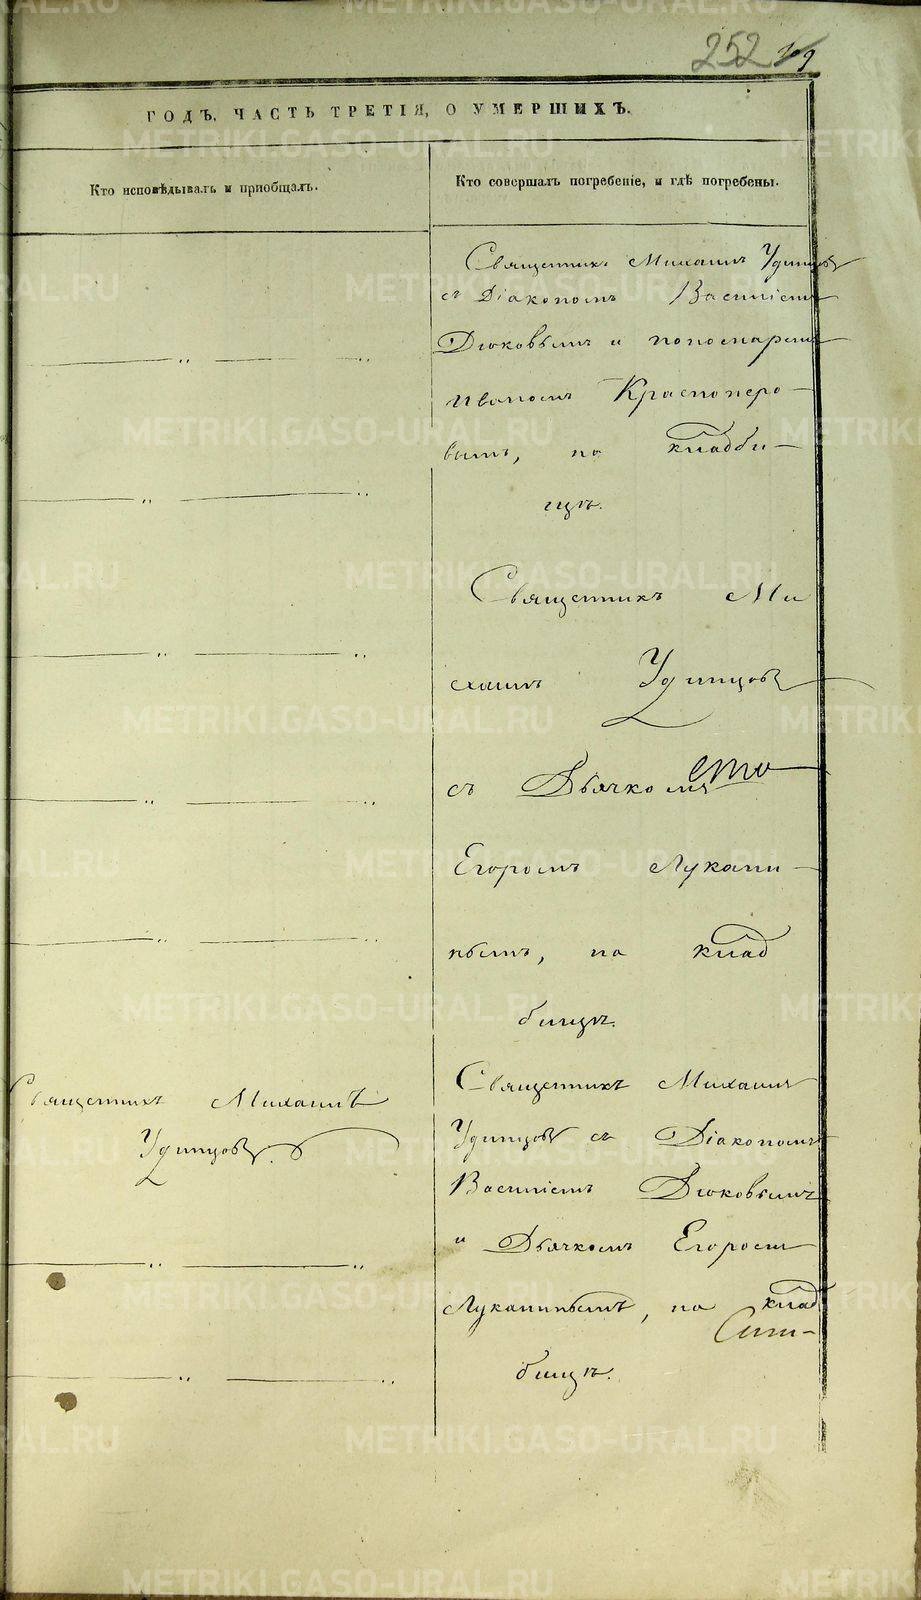 252
ГОДЪ, ЧАСТЬ ТРЕТІЯ, О УМЕРШИХЪ.
Кто исповѣдывалъ и пріобщалъ.
Кто совершалъ погребеніе, и гдѣ погребены.
Священникъ Михаилъ Удинцовъ
съ Діакономъ Василіемъ
Дюковымъ и пономаремъ
Иваномъ Красноперо-
вымъ, на кладби-
щѣ.
Священникъ Ми
хаилъ Удинцовъ
съ Дьячкомъ
Егоромъ Лукани-
нымъ, на клад
бищѣ.
Священникъ Михаилъ
Удинцовъ.
Священникъ Михаилъ
Удинцовъ съ Діакономъ
Василіемъ Дюковымъ
и Дьячкомъ Егоромъ
Луканинымъ, на клад
бищѣ.
METRIKI.GASO-URAL.RU